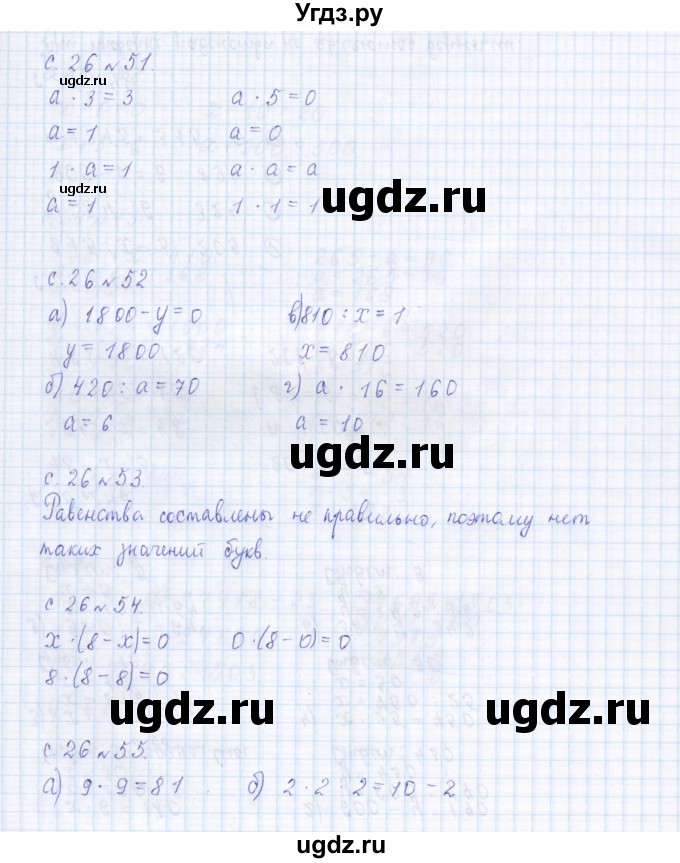 Угдз.ру
с. 26 № 51.
ugdz.ru
а · 3 = 3 а · 5 = 0
а = 1 а = 0
1 · а = 1 а · а = а
ugdz.ru ugdz.ru
а = 1 1 · 1 = 1
с. 26 № 52
а) 1800 - у = 0 в) 810 : х = 1
у = 1800 х = 810
б) 420 : а = 70 г) а · 16 = 160
а = 6 а = 10
ugdz.ru
с. 26 № 53.
Равенства составлены не правильно, поэтому нет
таких значений букв.
с 26 № 54.
х · (8 - х) = 0 0 · (8 - 0) = 0
8 · (8 - 8) = 0
ugdz.ru ugdz.ru
с. 26 № 55.
а) 9 · 9 = 81 б) 2 · 2 · 2 = 10 - 2
ugdz.ru